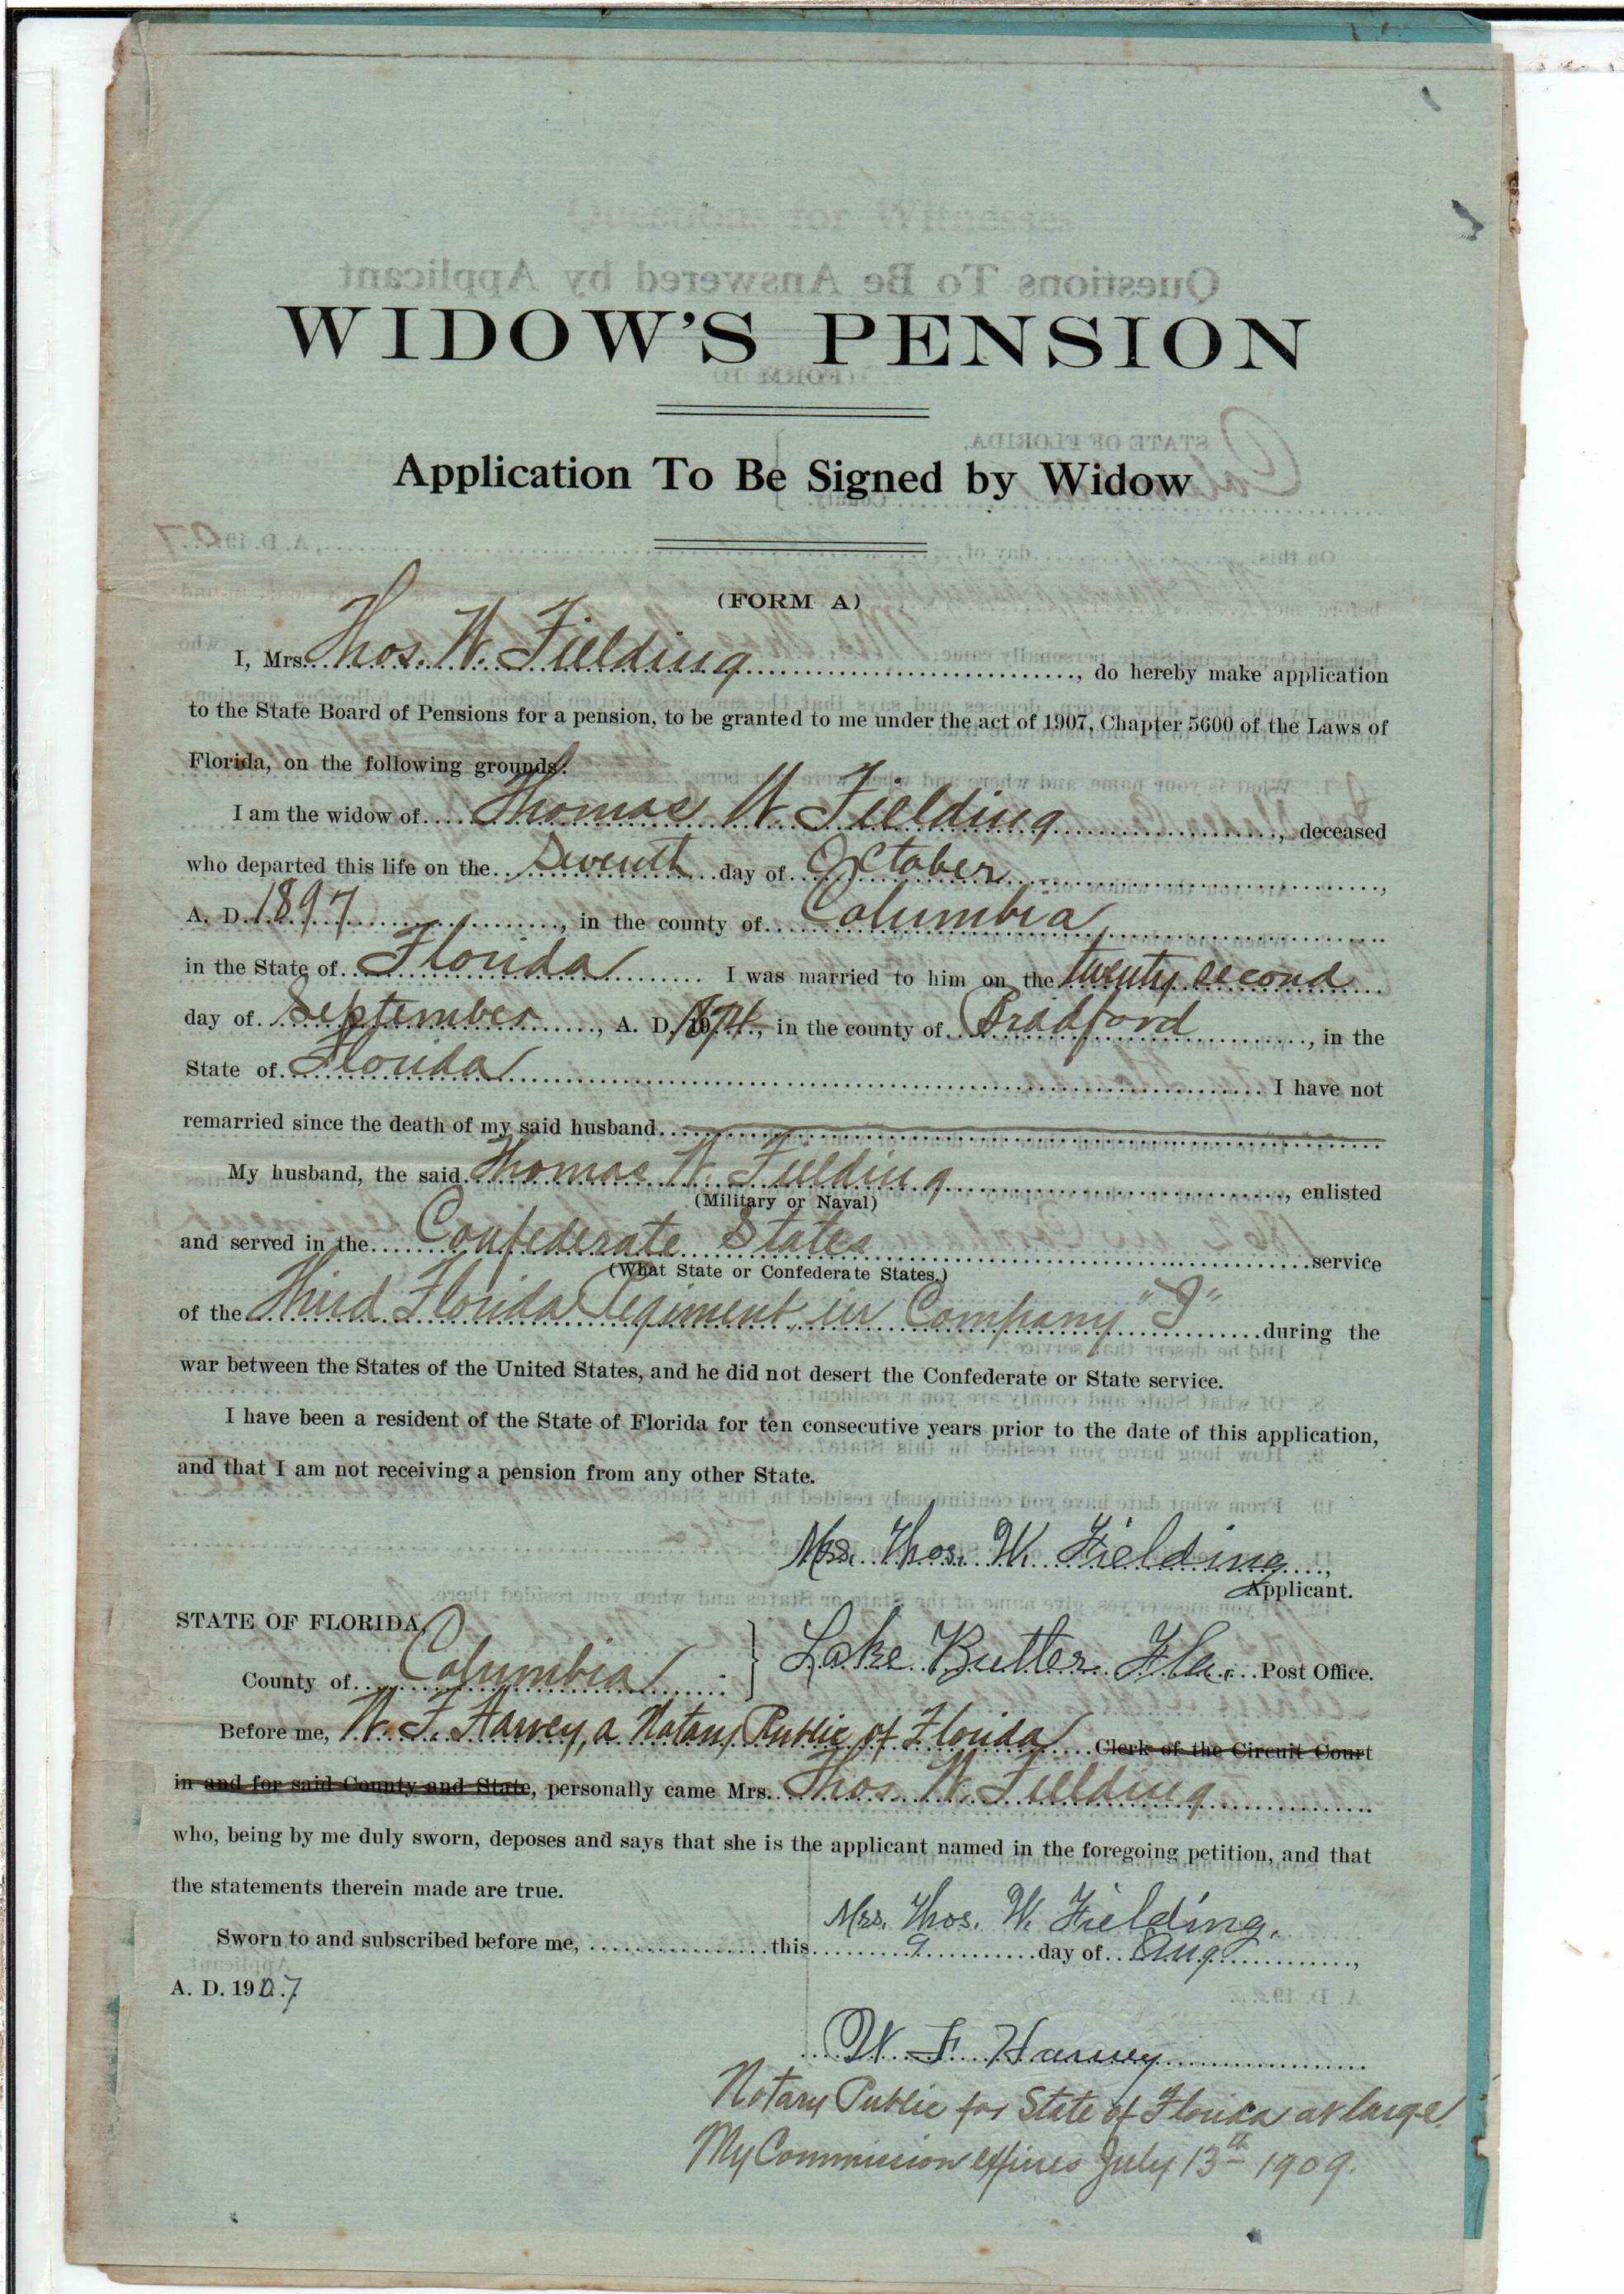 WIDOW'S PENSION
Application To Be Signed by Widow
(FORM A)
I, Mrs. Thos. W. Fielding, do hereby make application
to the State Board of Pensions for a pension, to be granted to me under the act of 1907, Chapter 5600 of the Laws of
Florida, on the following grounds:
I am the widow of Thomas W. Fielding, deceased
who departed this life on the Seventh day of October,
A. D. 1897, in the county of Columbia
in the State of Florida I was married to him on the twenty second
day of September, A. D. 1874, in the county of Bradford, in the
State of Florida I have not
remarried since the death of my said husband
My husband, the said Thomas W. Fielding, enlisted
(Military or Naval)
and served in the Confederate States service
(What State or Confederate States.)
of the Third Florida Regiment, in Company "I" during the
war between the States of the United States, and he did not desert the Confederate or State service.
I have been a resident of the State of Florida for ten consecutive years prior to the date of this application,
and that I am not receiving a pension from any other State.
Mrs. Thos. W. Fielding,
Applicant.
STATE OF FLORIDA
County of Columbia } Lake Butler Fla. Post Office.
Before me, W. F. Harvey, a Notary Public of Florida Clerk of the Circuit Court
in and for said County and State, personally came Mrs. Thos. W. Fielding
who, being by me duly sworn, deposes and says that she is the applicant named in the foregoing petition, and that
the statements therein made are true.
Mrs. Thos. W. Fielding.
Sworn to and subscribed before me, this 9 day of Aug,
A. D. 1907
W. F. Harvey
Notary Public for State of Florida at large.
My Commission expires July 13th 1909.